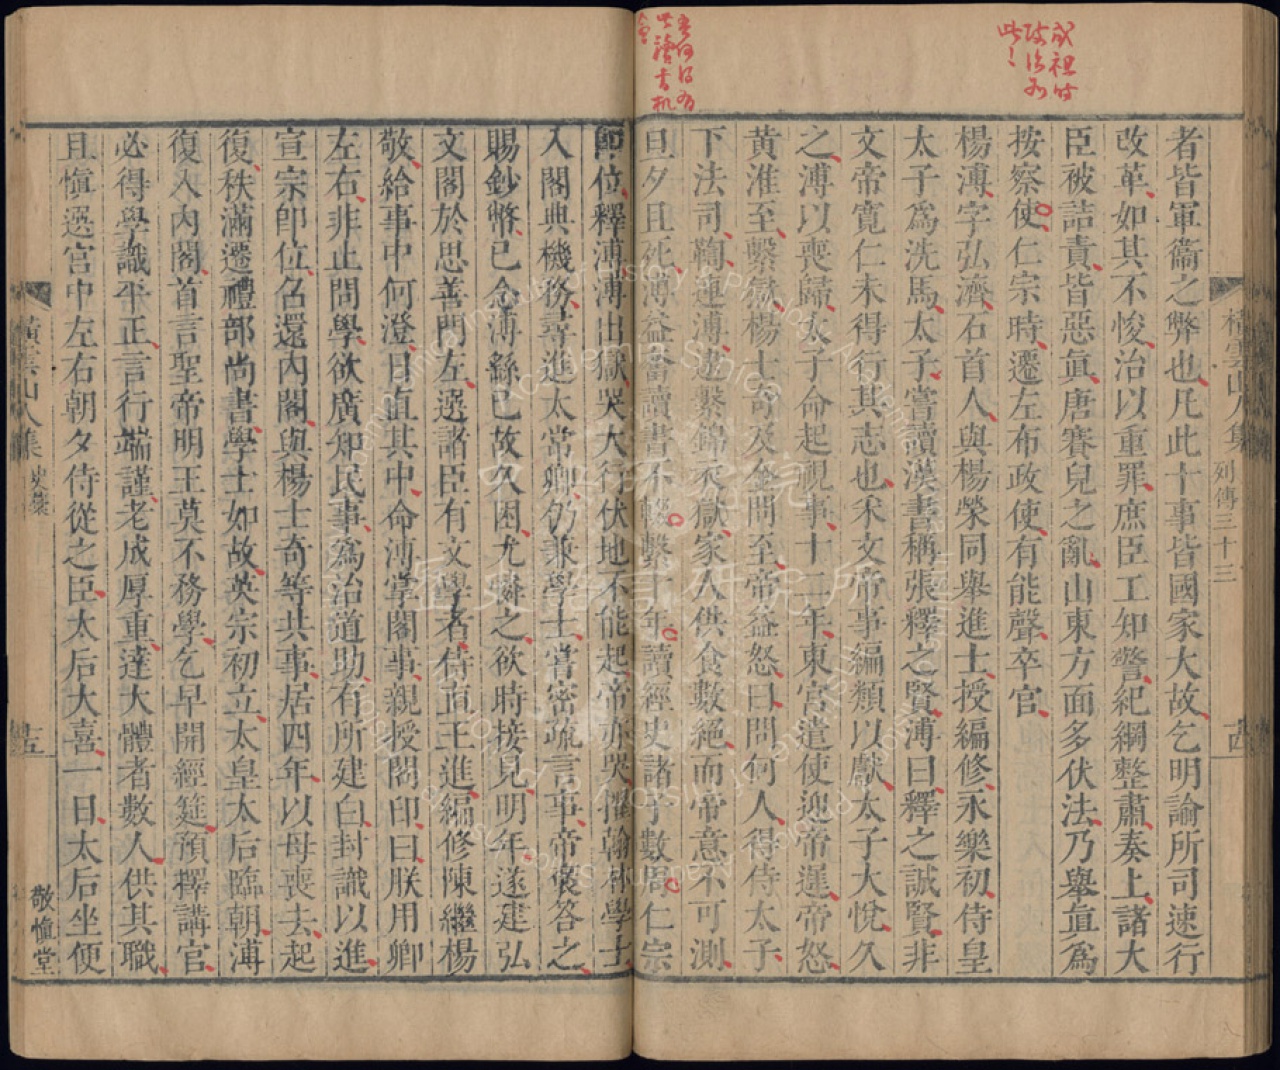 成祖時
政治如
此！
橫雲山人集
列傳三十三
者皆軍衞之弊也凡此十事皆國家大故乞明諭所司速行
改革如其不悛治以重罪庶臣工知警紀綱整肅奏上諸大
臣被詰責皆惡眞唐賽兒之亂山東方面多伏法乃舉眞爲
按察使仁宗時遷左布政使有能聲卒官
楊溥字弘濟石首人與楊榮同舉進士授編修永樂初侍皇
太子爲洗馬太子嘗讀漢書稱張釋之賢溥曰釋之誠賢非
文帝寬仁未得行其志也采文帝事編類以獻太子大悅久
之溥以喪歸太子命起視事十二年東宮遣使迎帝遲帝怒
黃淮至繫獄楊士奇及金問至帝益怒曰問何人得侍太子
下法司鞫連溥逮繫錦衣獄家人供食數絕而帝意不可測
旦夕且死溥益奮讀書不輟繫十年讀經史諸子數周仁宗
卽位釋溥溥出獄哭大行伏地不能起帝亦哭擢翰林學士
入閣典機務尋進太常卿仍兼學士嘗密疏言事帝褒答之
賜鈔幣已念溥繇已故久困尤憐之欲時接見明年遂建弘
文閣於思善門左選諸臣有文學者侍直王進編修陳繼楊
敬給事中何澄日直其中命溥掌閣事親授閣印曰朕用卿
左右非止問學欲廣知民事爲治道助有所建白封識以進
宣宗卽位召還內閣與楊士奇等共事居四年以母喪去起
復秩滿遷禮部尚書學士如故英宗初立太皇太后臨朝溥
復入內閣首言聖帝明王莫不務學乞早開經筵預擇講官
必得學識平正言行端謹老成厚重達大體者數人供其職
且愼選宮中左右朝夕侍從之臣太后大喜一日太后坐便
橫雲山人集
史藁
十五
敬愼堂